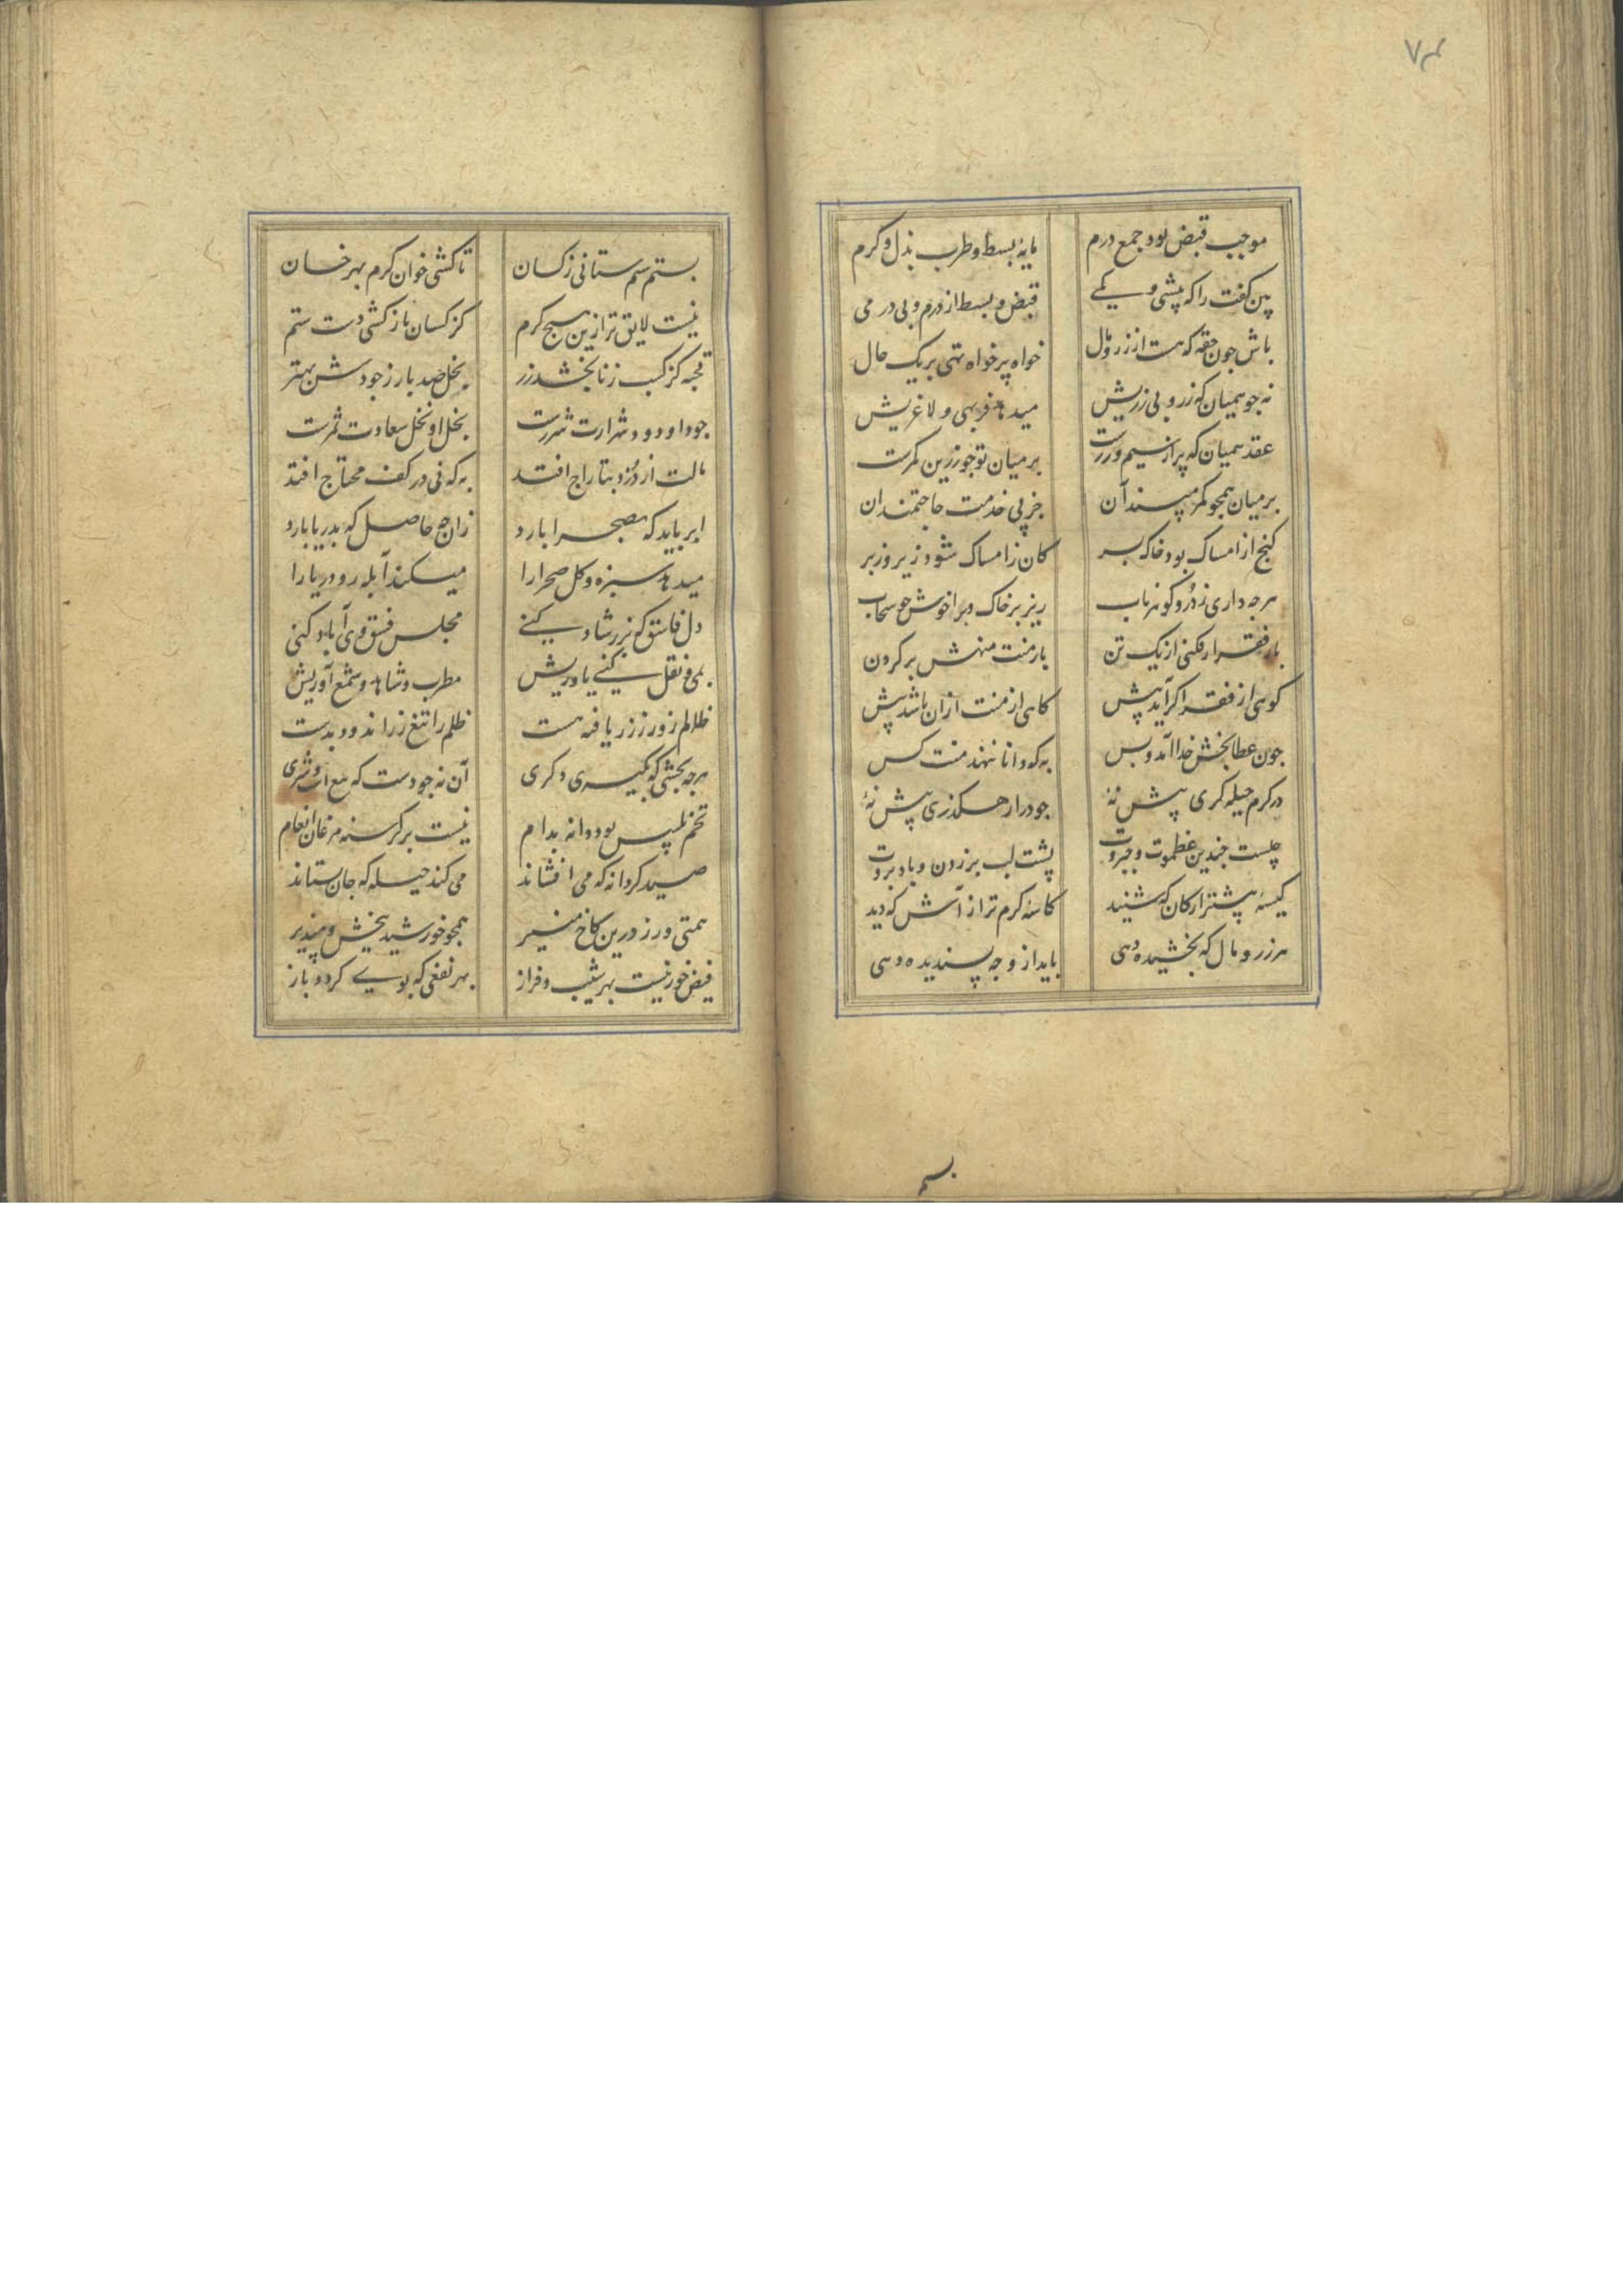 ۷۴
موجب قبض بود جمع درم مایهٔ بسط و طرب بذل و کرم
بین کفت را که بپیشی و کمی قبض و بسط از درم و بی درمی
باش جون حقه که هست از زر و مال خواه پر خواه تهی بر یک حال
نه جو همیان که زر و بی زریش میدهد فربهی و لاغریش
عقد همیان که پر از سیم و زرست بر میان تو جو زرین کمرست
بر میان همجو کمر مپسند آن جز پی خدمت حاجتمندان
کنج از امساک بود خاک بسر کان ز امساک شود زیر و زبر
هرجه داری ز در و کوهر ناب ریز بر خاک و برا خوش جو سحاب
بار فقر ار فکنی از یک تن بار منت منهش بر کردن
کوهی از فقر اکر آید پیش کاهی از منت ازان باشد پیش
جون عطا بخش خدا آمد و بس به که دانا ننهد منت کس
در کرم حیله کری پیش نهٔ جود را رهکذری پیش نهٔ
چیست جندین عظموت و جبروت پشت لب بر زدن و باد بروت
کیسه پیشتر از کان که شنید کاسه کرم تر از آش که دید
هر زر و مال که بخشیده دهی باید از وجه پسندیده دهی
بستم
بستم سیم ستانی ز کسان تا کشی خوان کرم بهر خسان
نیست لایق تر ازین هیج کرم کز کسان باز کشی دست ستم
قحبه کز کسب زنا بخشد زر بخل صد بار ز جودش بهتر
جود او دود شرارت شررست بخل او نخل سعادت ثمرست
مالت از دزد بتاراج افتد به که نی در کف محتاج افتد
ابر باید که بصحرا بارد زان جه حاصل که بدریا بارد
میدهد سبزه و کل صحرا را میکند آبله رو دریا را
دل فاسق که بزر شاد کنی مجلس فسق وی آباد کنی
بمی و نقل کنی یاوریش مطرب و شاهد و شمع آوریش
ظالم زور ز زر یافته هست ظلم را تیغ زر اندود بدست
هرجه بخشی که بکیری دکری آن نه جودست که بیع است و شری
تخم تلبیس بود دانه بدام نیست بر کرسنه مرغان انعام
صید کر دانه که می افشاند می کند حیله که جان ستاند
همتی ورز درین کاخ منیر همجو خورشید ببخش و مپذیر
فیض خور نیست بهر شیب و فراز بهر نفعی که بوی کردد باز